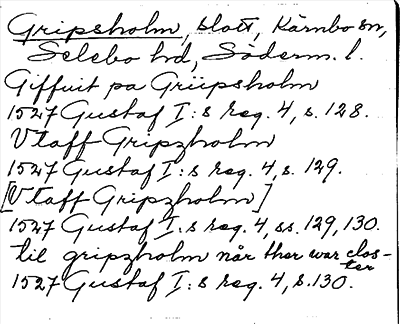 Gripsholm, slott, Kärnbo sn,
Selebo hd, Söderm. l.
Giffuit pa Griipsholm
1527 Gustaf I:s reg. 4, s. 128.
Vtaff Gripzholm
1527 Gustaf I:s reg. 4, s. 129.
[Vtaff Gripzholm]
1527 Gustaf I:s reg. 4, ss. 129, 130.
til gripzholm när ther war clos-
ter
1527 Gustaf I:s reg. 4, s. 130.